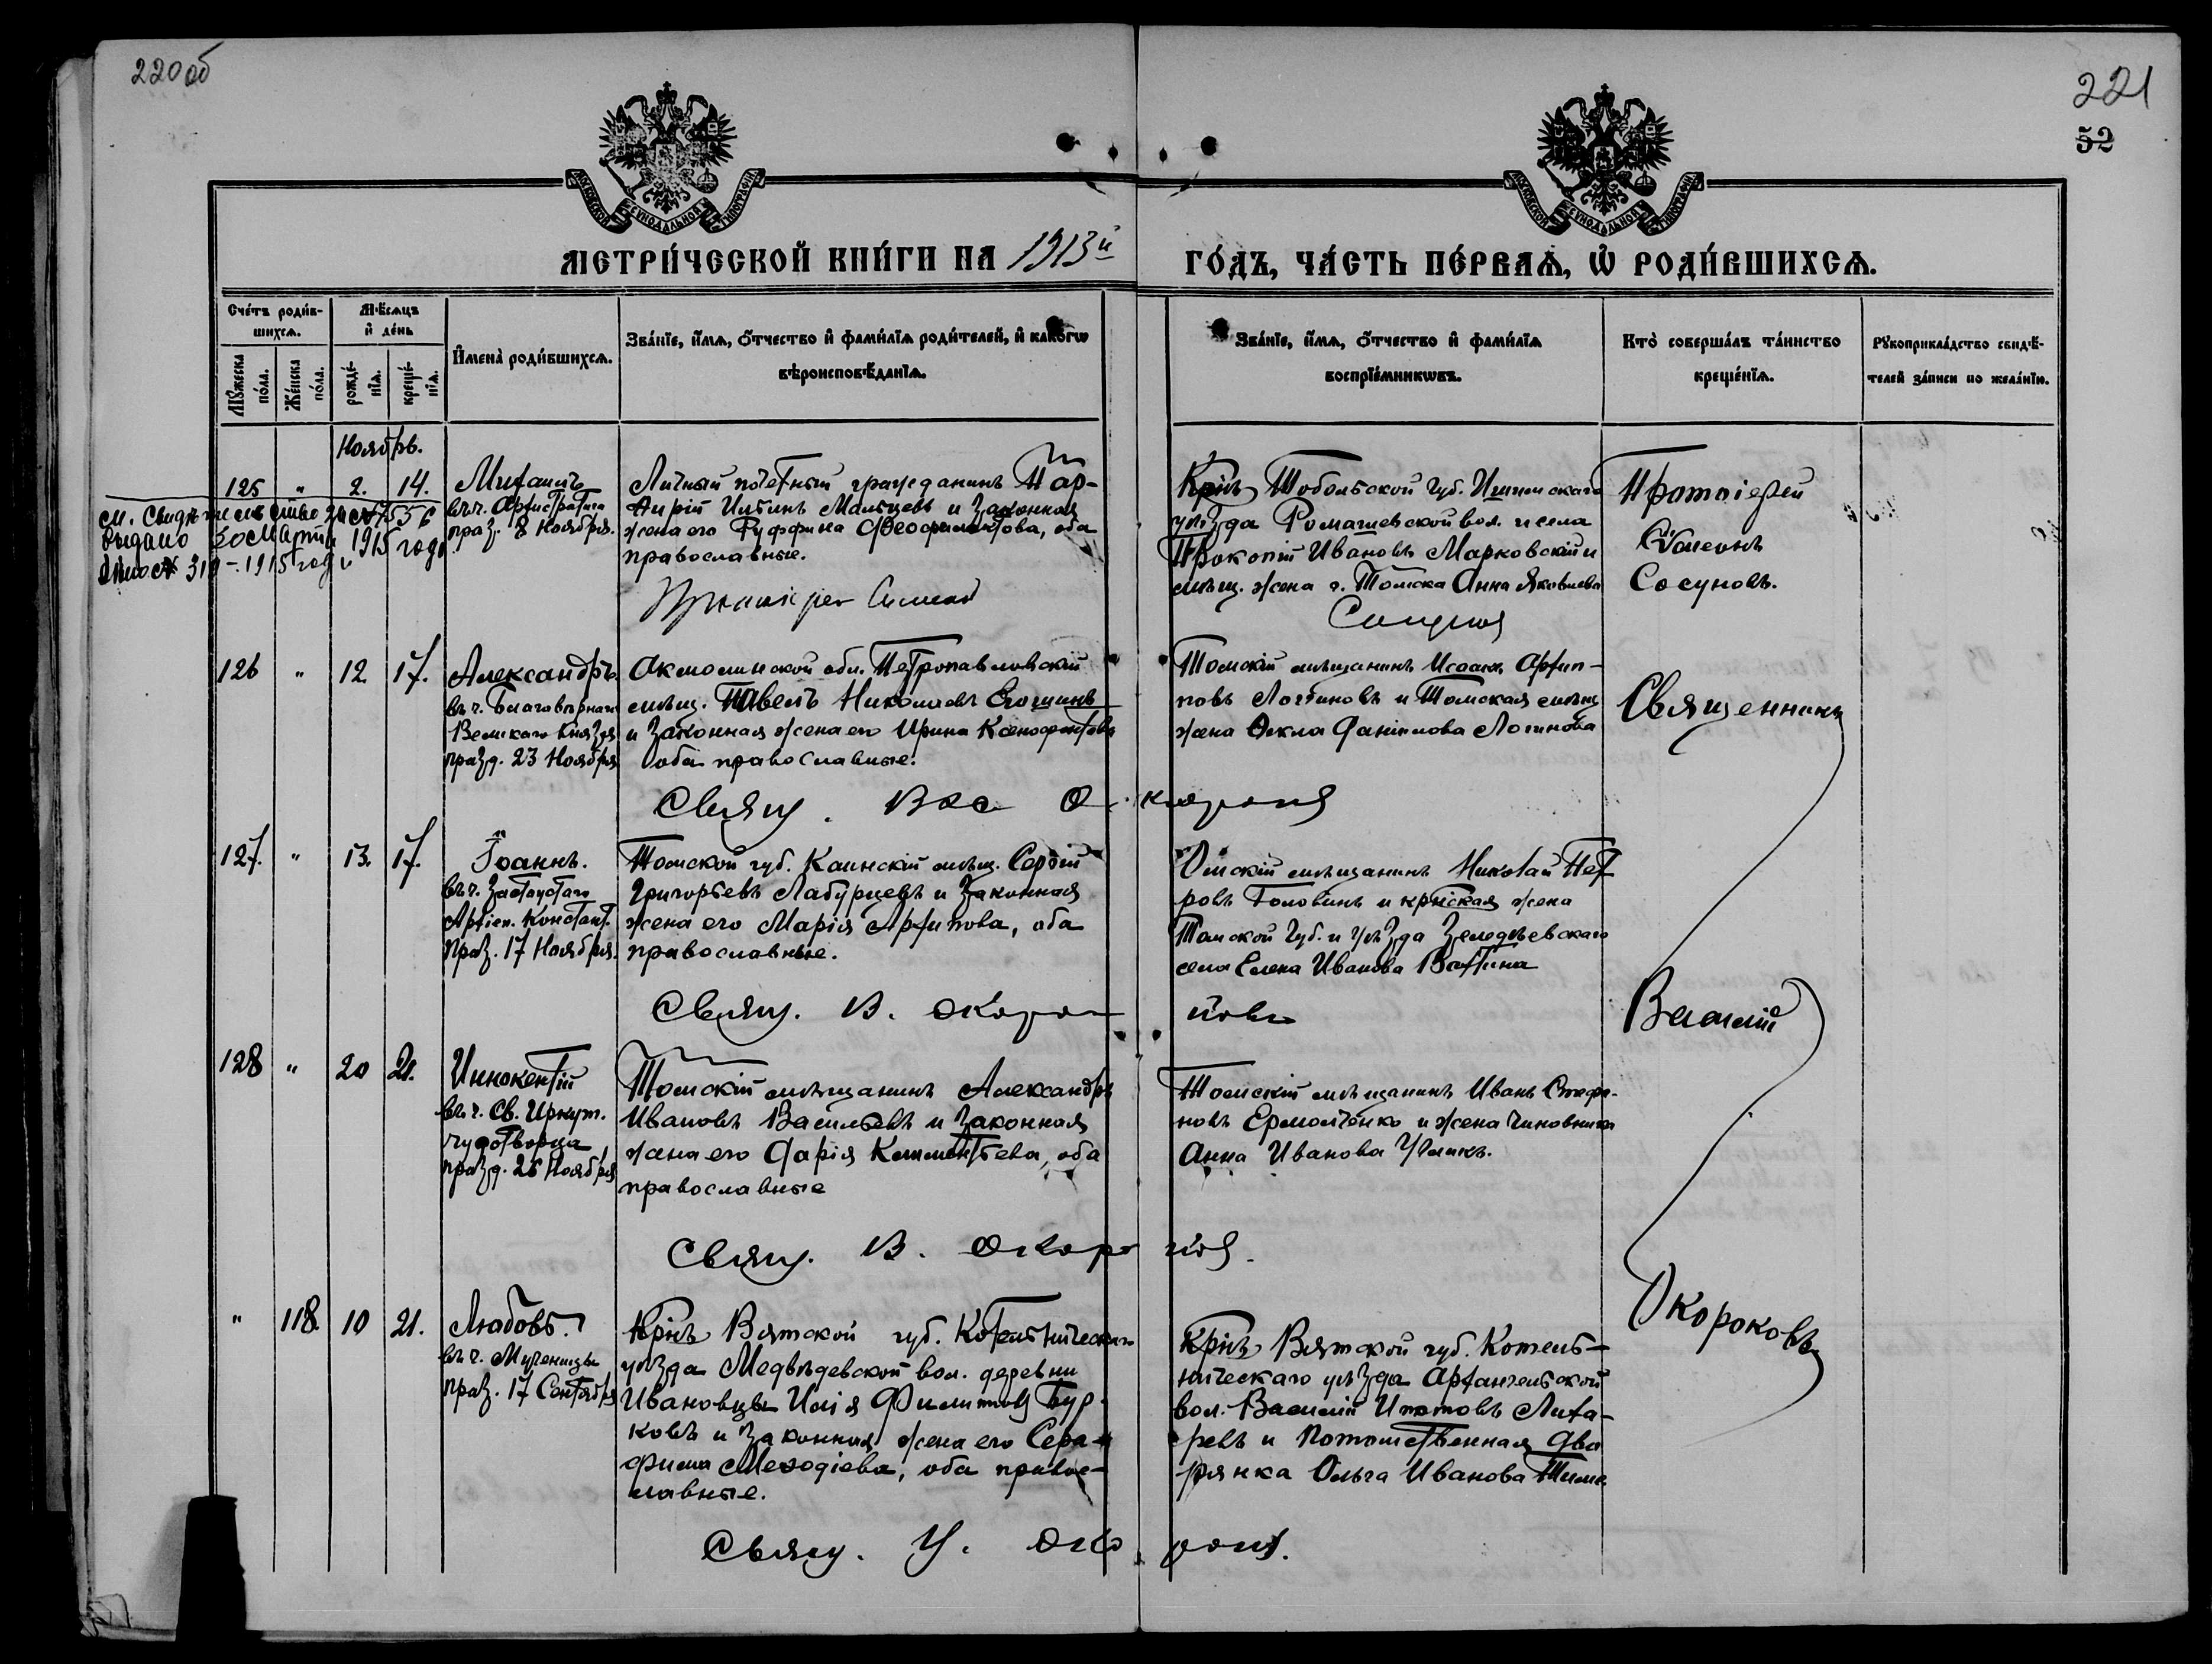 220 об
221
52
МОСКОВСКОЙ СѴНОДАЛЬНОЙ ТИПОГРАФІИ
МОСКОВСКОЙ СѴНОДАЛЬНОЙ ТИПОГРАФІИ
МЕТРИ́ЧЕСКОЙ КНИ́ГИ НА 1913й
ГО́ДЪ, ЧА́СТЬ ПЕ́РВАѦ, Ѡ РОДИ́ВШИХСѦ.
Сче́тъ роди́в-
шихсѧ.
Мѣсѧцъ
и де́нь
Мꙋжеска по́ла.
Же́нска по́ла.
рожде́-
нїѧ.
креще́-
нїѧ.
Имена̀ роди́вшихсѧ.
Зва́нїе, и́мѧ, о́тчество и фами́лїѧ роди́телей, и како́гѡ
вѣроисповѣданїѧ.
Зва́нїе, и́мѧ, о́тчество и фами́лїѧ
воспрїе́мникѡвъ.
Кто̀ соверша́лъ та́инство
креще́нїѧ.
Рꙋкоприкла́дство свидѣ-
телей за́писи по жела́нїю.
Ноябрь.
125 " 2. 14.
Михаилъ
въ ч. Архистратига
праз. 8 Ноября.
Личный почетный гражданинъ Пар-
фирій Ильинъ Мальцевъ и законная
жена его Руффина Феофилактова, оба
православные.
Протоіерей Симеонъ
Сосуновъ
Крнъ Тобольской губ. Ишимскаго
уѣзда Ромашевской вол. и села
Прокопій Ивановъ Марковскій и
мѣщ. жена г. Томска Анна Яковлева
Протоіерей
Симеонъ
Сосуновъ.
см. Свидѣтельство за № 556
выдано 20 Марта 1915 года
1915 год
126 " 12. 17.
Александръ
въ ч. Благовѣрнаго
Великаго Князя
празд. 23 Ноября
Акмолинской обл. Петропавловскій
мѣщ. Павелъ Николаевъ Егошинъ
и законная жена его Ирина Ксенофонтова
оба православные.
Свящ. Вас Окороковъ
Томскій мѣщанинъ Исаакъ Архип-
повъ Логиновъ и Томская мѣщ
жена Ѳекла Даніилова Логинова
Священникъ
127. " 13. 17.
Іоаннъ.
въ ч. Златоустаго
Архіеп. Констант.
Праз. 17 Ноября.
Томской губ. Каинскій мѣщ. Сергій
Григорьевъ Лабурцевъ и законная
жена его Марія Архипова, оба
православные.
Свящ. В. Окороковъ
Омскій мѣщанинъ Николай Пет
ровъ Головинъ и крнская жена
Томской губ. и уѣзда Зеледѣевскаго
села Елена Иванова Вахтина
Василій
128 " 20 21.
Иннокентій
въ ч. Св. Иркут.
чудотворца
празд. 26 Ноября
Томскій мѣщанинъ Александръ
Ивановъ Васильевъ и законная
жена его Дарія Климентьева, оба
православные
Свящ. В. Окороковъ
Томскій мѣщанинъ Иванъ Стефа-
новъ Ермолченко и жена чиновника
Анна Иванова
" 118. 10 21.
Любовь.
въ ч. Мученицы
праз. 17 Сентября
Крнъ Вятской губ. Котельническаго
уѣзда Медвѣдевской вол. деревни
Ивановцы Илія Филипповъ Бур-
ковъ и законная жена его Сера-
фима Меѳодіева, оба правос-
лавные.
Свящ. В. Окороковъ.
Крнъ Вятской губ. Котель-
ническаго уѣзда Архангельской
вол. Василій Ипатовъ Лиха-
ревъ и Потомственная дво
рянка Ольга Иванова
Окороковъ